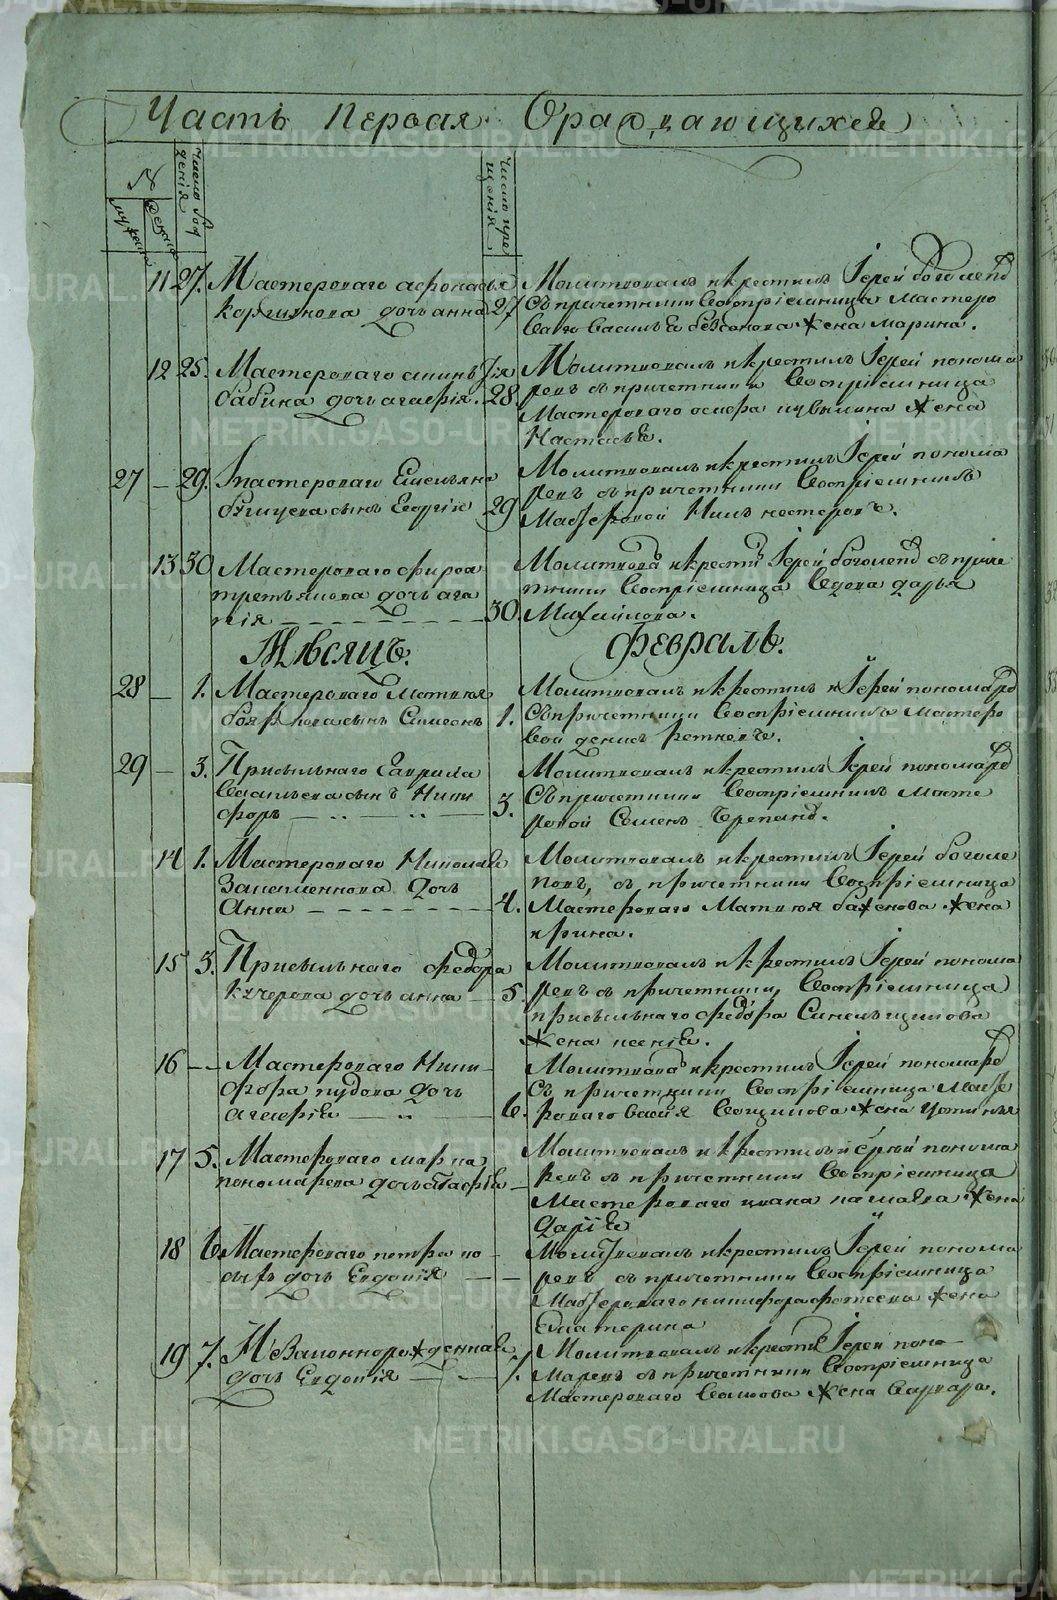 Часть Первая Ораждающихся
№
мужеска
женска
число рождения
число крещения
11 27. Мастероваго афонасья
дочь анна 27
Молитвовалъ и крестилъ Іерей боголеповъ
Съ причетники Воспріемница мастеро
ваго Василья жена марина.
12 25. Мастероваго
бабина дочь агафія. 28.
Молитвовалъ и крестилъ Іерей понома
ревъ съ причетники Воспріемница
Мастероваго осифа жена
Настасья.
27 — 29. Мастероваго Емельяна
сынъ Георгій 29
Молитвовалъ и крестилъ Іерей понома
ревъ съ причетники Воспріемникъ
Мастеровой Нилъ нестеровъ.
13 30 Мастероваго фирса
третьякова дочь ага
пія 30.
Молитвова и крести Іерей боголепов съ приче
тники Воспріемница вдова дарья
Михайлова.
Мѣсяцъ. Февраль.
28 — 1. Мастероваго Матвея
сынъ Симеонъ 1.
Молитвовалъ и крестилъ Іерей пономарев
Съ причетники Воспріемникъ мастеро
вой денисъ
29 — 3. Присыльнаго Гаврила
Васильева сынъ Ники
форъ 3.
Молитвовалъ и крестилъ Іерей пономарев
Съ причетники Воспріемникъ Масте
ровой Семенъ
14 1. Мастероваго Николая
дочь
Анна 4.
Молитвовалъ и крестилъ Іерей боголе
повъ, съ причетники Воспріемница
Мастероваго Матвея баженова жена
ирина.
15 3. Присыльнаго федора
кучерова дочь анна — 5.
Молитвовалъ и крестилъ Іерей понома
ревъ съ причетники, Воспріемница
присыльнаго федора Синельщикова
жена ксенія.
16 — — Мастероваго Ники-
фора пудова дочь
агафія 6.
Молитвова и крестилъ Іерей пономарев
Съ причетники Воспріемница Масте
роваго жена
17 5. Мастероваго марка
пономарева дочь агафія —
Молитвовалъ и крестилъ Іерей понома
ревъ съ причетники Воспріемница
Мастероваго ивана жена
Дарія
18 6. Мастероваго петра но
дочь Евдокія — —
Молитвовалъ и крестилъ Іерей понома
ревъ съ причетники Воспріемница
Мастероваго никифора фотеева жена
Екатерина
19 7. Незаконнорожденная
дочь Евдокія 7.
Молитвовалъ и крести Іерей поно-
маревъ съ причетники Воспріемница
Мастероваго жена Варвара.
METRIKI.GASO-URAL.RU